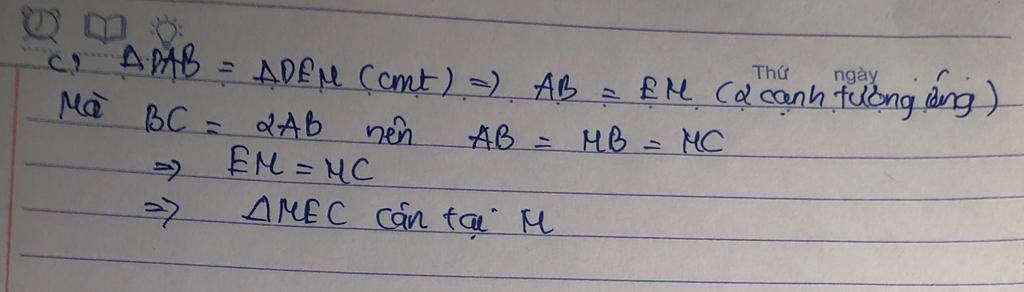 Thứ ngày
c, ΔDAB = ΔDEM (cmt) => AB = EM (2 cạnh tương ứng)
Mà BC = 2AB nên AB = MB = MC
=> EM = MC
=> ΔMEC cân tại M